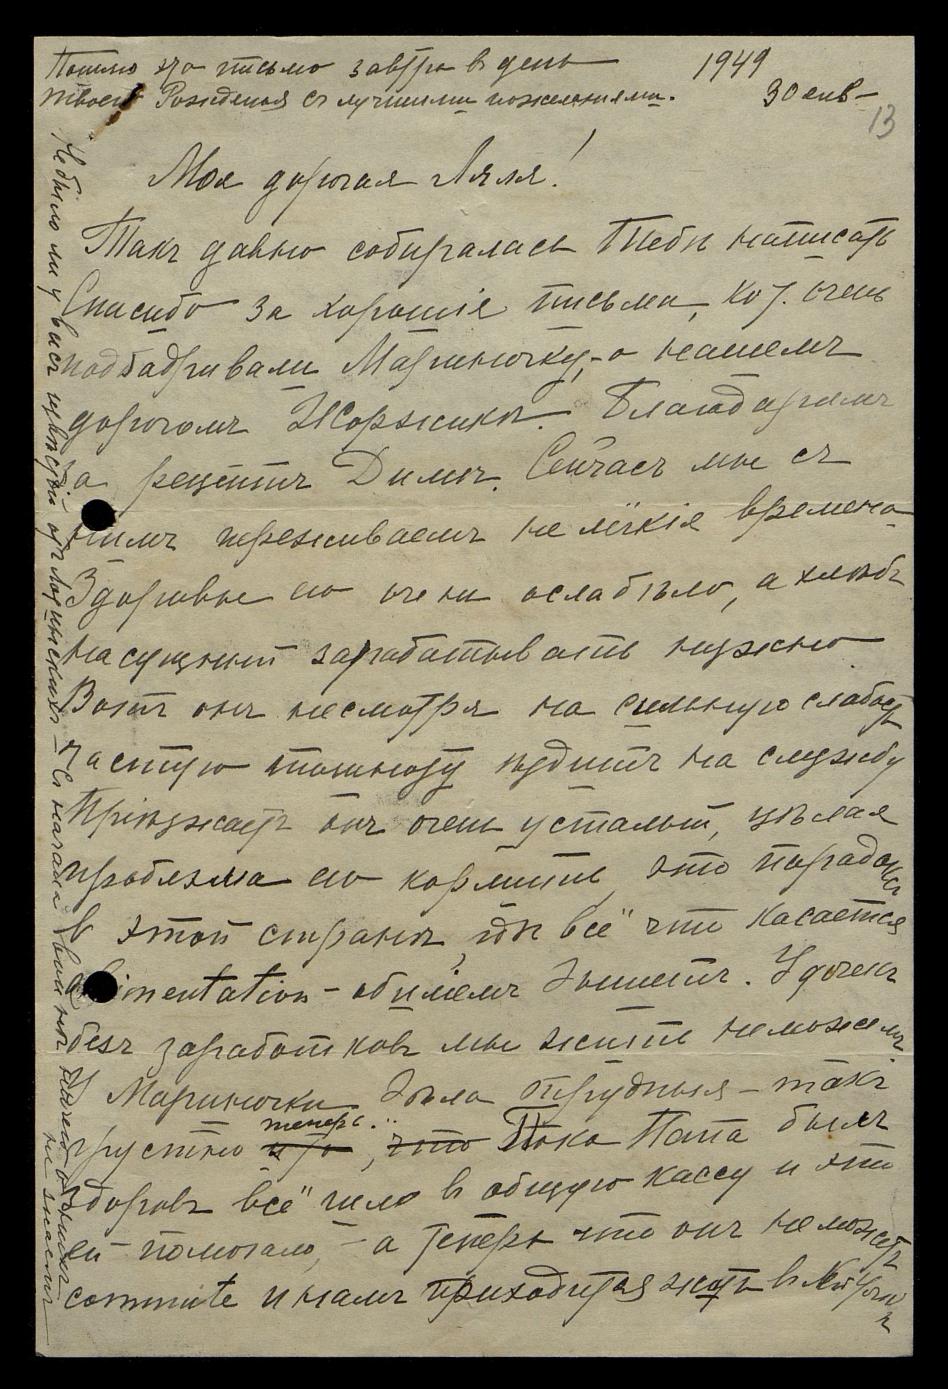 Пошлю это письмо завтра в день
твоего Рожденья съ лучшими пожеланиями.
1949
30 янв
13
Моя дорогая Ляля!
Такъ давно собиралась Тебѣ написать
Спасибо за хорошія письма, кот. очень
подбадривали Мариночку, о нашемъ
дорогомъ Жоржикѣ. Благодаримъ
за рецептъ Димы. Сейчасъ мы съ
нимъ переживаемъ не лёгкія времена
Здоровье его очень ослабѣло, а хлѣбъ
насущный зарабатывать нужно
Вотъ онъ несмотря на сильную слабость
частую тошноту ѣздитъ на службу
Пріѣзжаетъ онъ очень усталый, цѣлая
проблэма его кормить, это парадоксъ
в этой странѣ, гдѣ всё что касается
alimentation - обиліемъ дышетъ. Удочекъ
безъ заработковъ мы жить неможемъ
У Мариночки была трудная - такъ
грустно теперь... Пока Папа былъ
здоровъ всё шло в общую кассу и это
ей помогало, - а теперь что онъ неможетъ
commute и намъ приходится жить в Нью Іоркѣ
Не было ли у васъ извѣстій отъ Лорыныхъ - Съ начала войны ничего о нихъ
не знаемъ